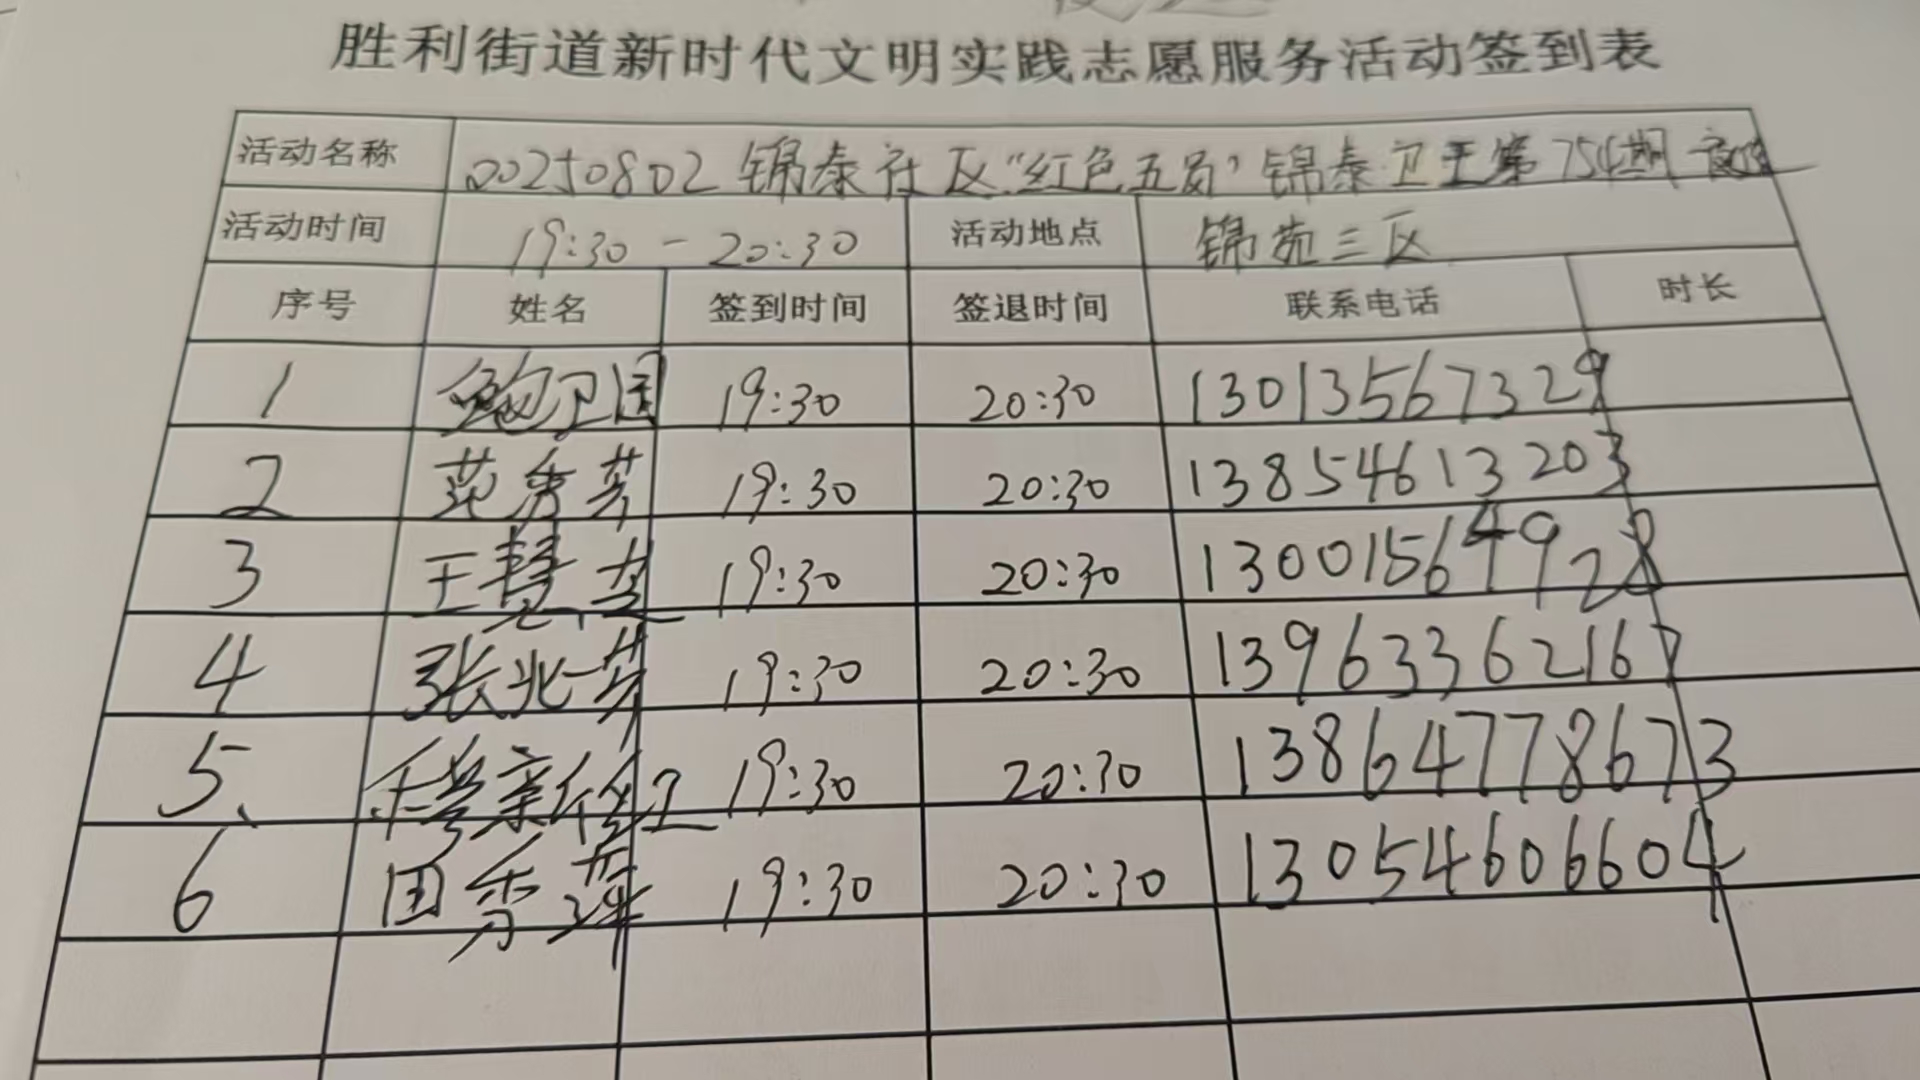 胜利街道新时代文明实践志愿服务活动签到表
活动名称 20250802锦泰社区“红色五员”锦泰卫士第754期
活动时间 19:30-20:30 活动地点 锦苑三区
序号 姓名 签到时间 签退时间 联系电话 时长
1 鲍卫国 19:30 20:30 13013567329
2 范秀芳 19:30 20:30 13854613203
3 王慧芝 19:30 20:30 13001564928
4 张兆芳 19:30 20:30 13963362167
5、 19:30 20:30 13864778673
6 田秀萍 19:30 20:30 13054606604